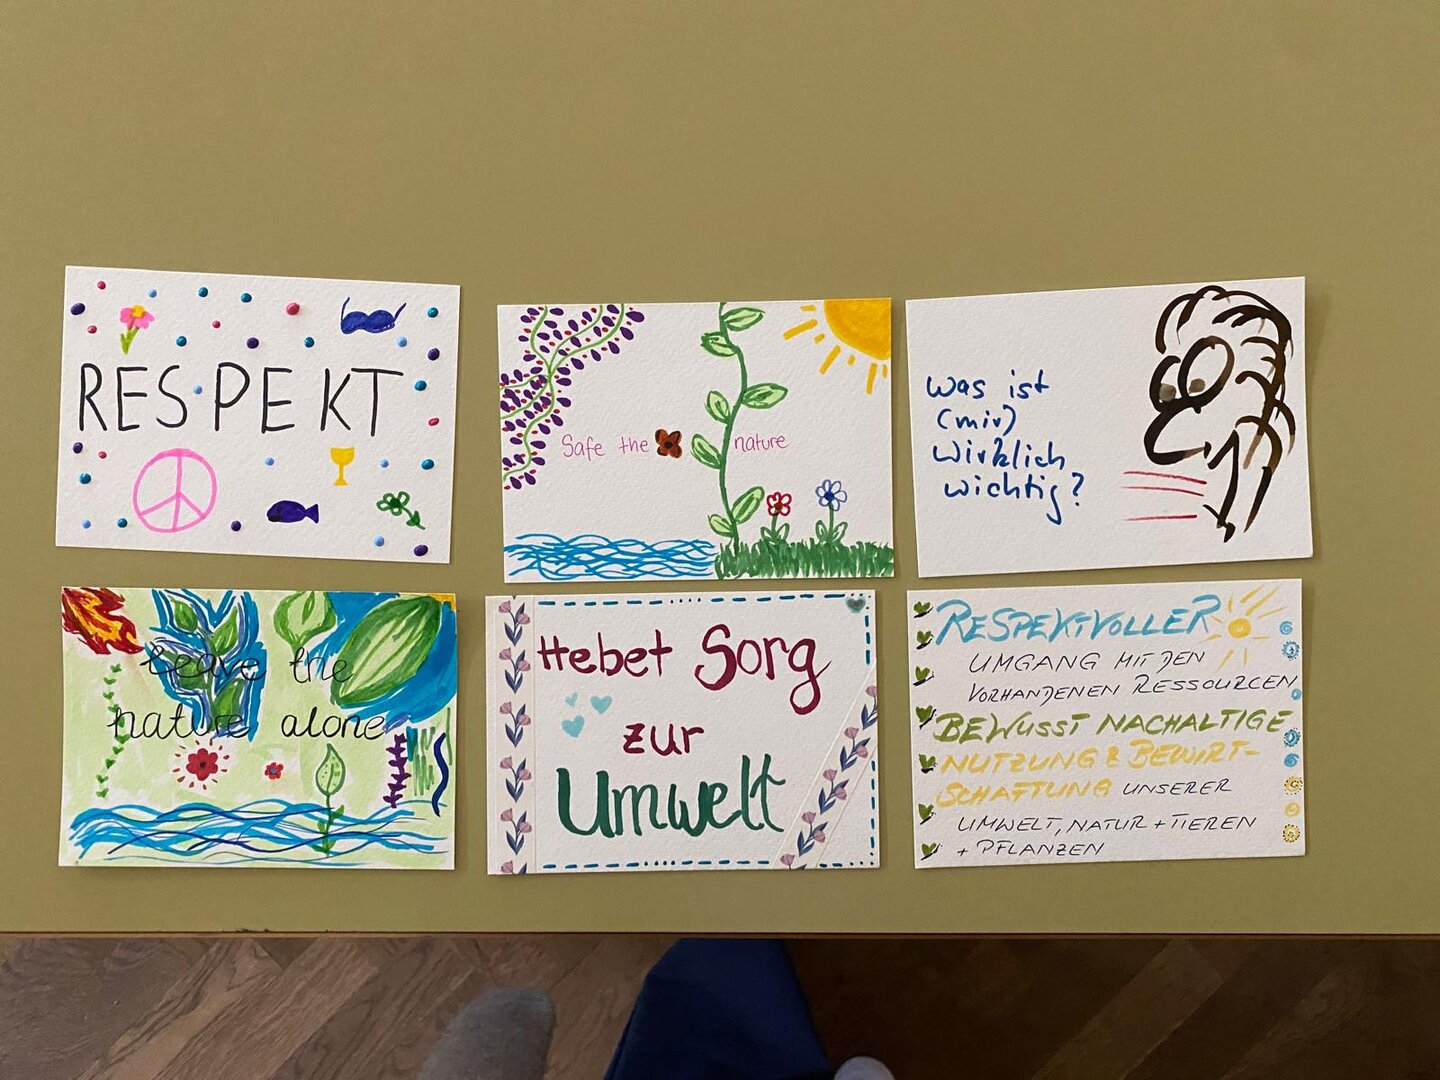 RESPEKT
Safe the nature
Was ist
(mir)
wirklich
wichtig?
Leave the
nature alone
Hebet Sorg
zur
Umwelt
RESPEKTVOLLER
UMGANG MIT DEN
VORHANDENEN RESSOURCEN
BEWUSST NACHALTIGE
NUTZUNG & BEWIRT-
SCHAFTUNG UNSERER
UMWELT, NATUR + TIEREN
+ PFLANZEN